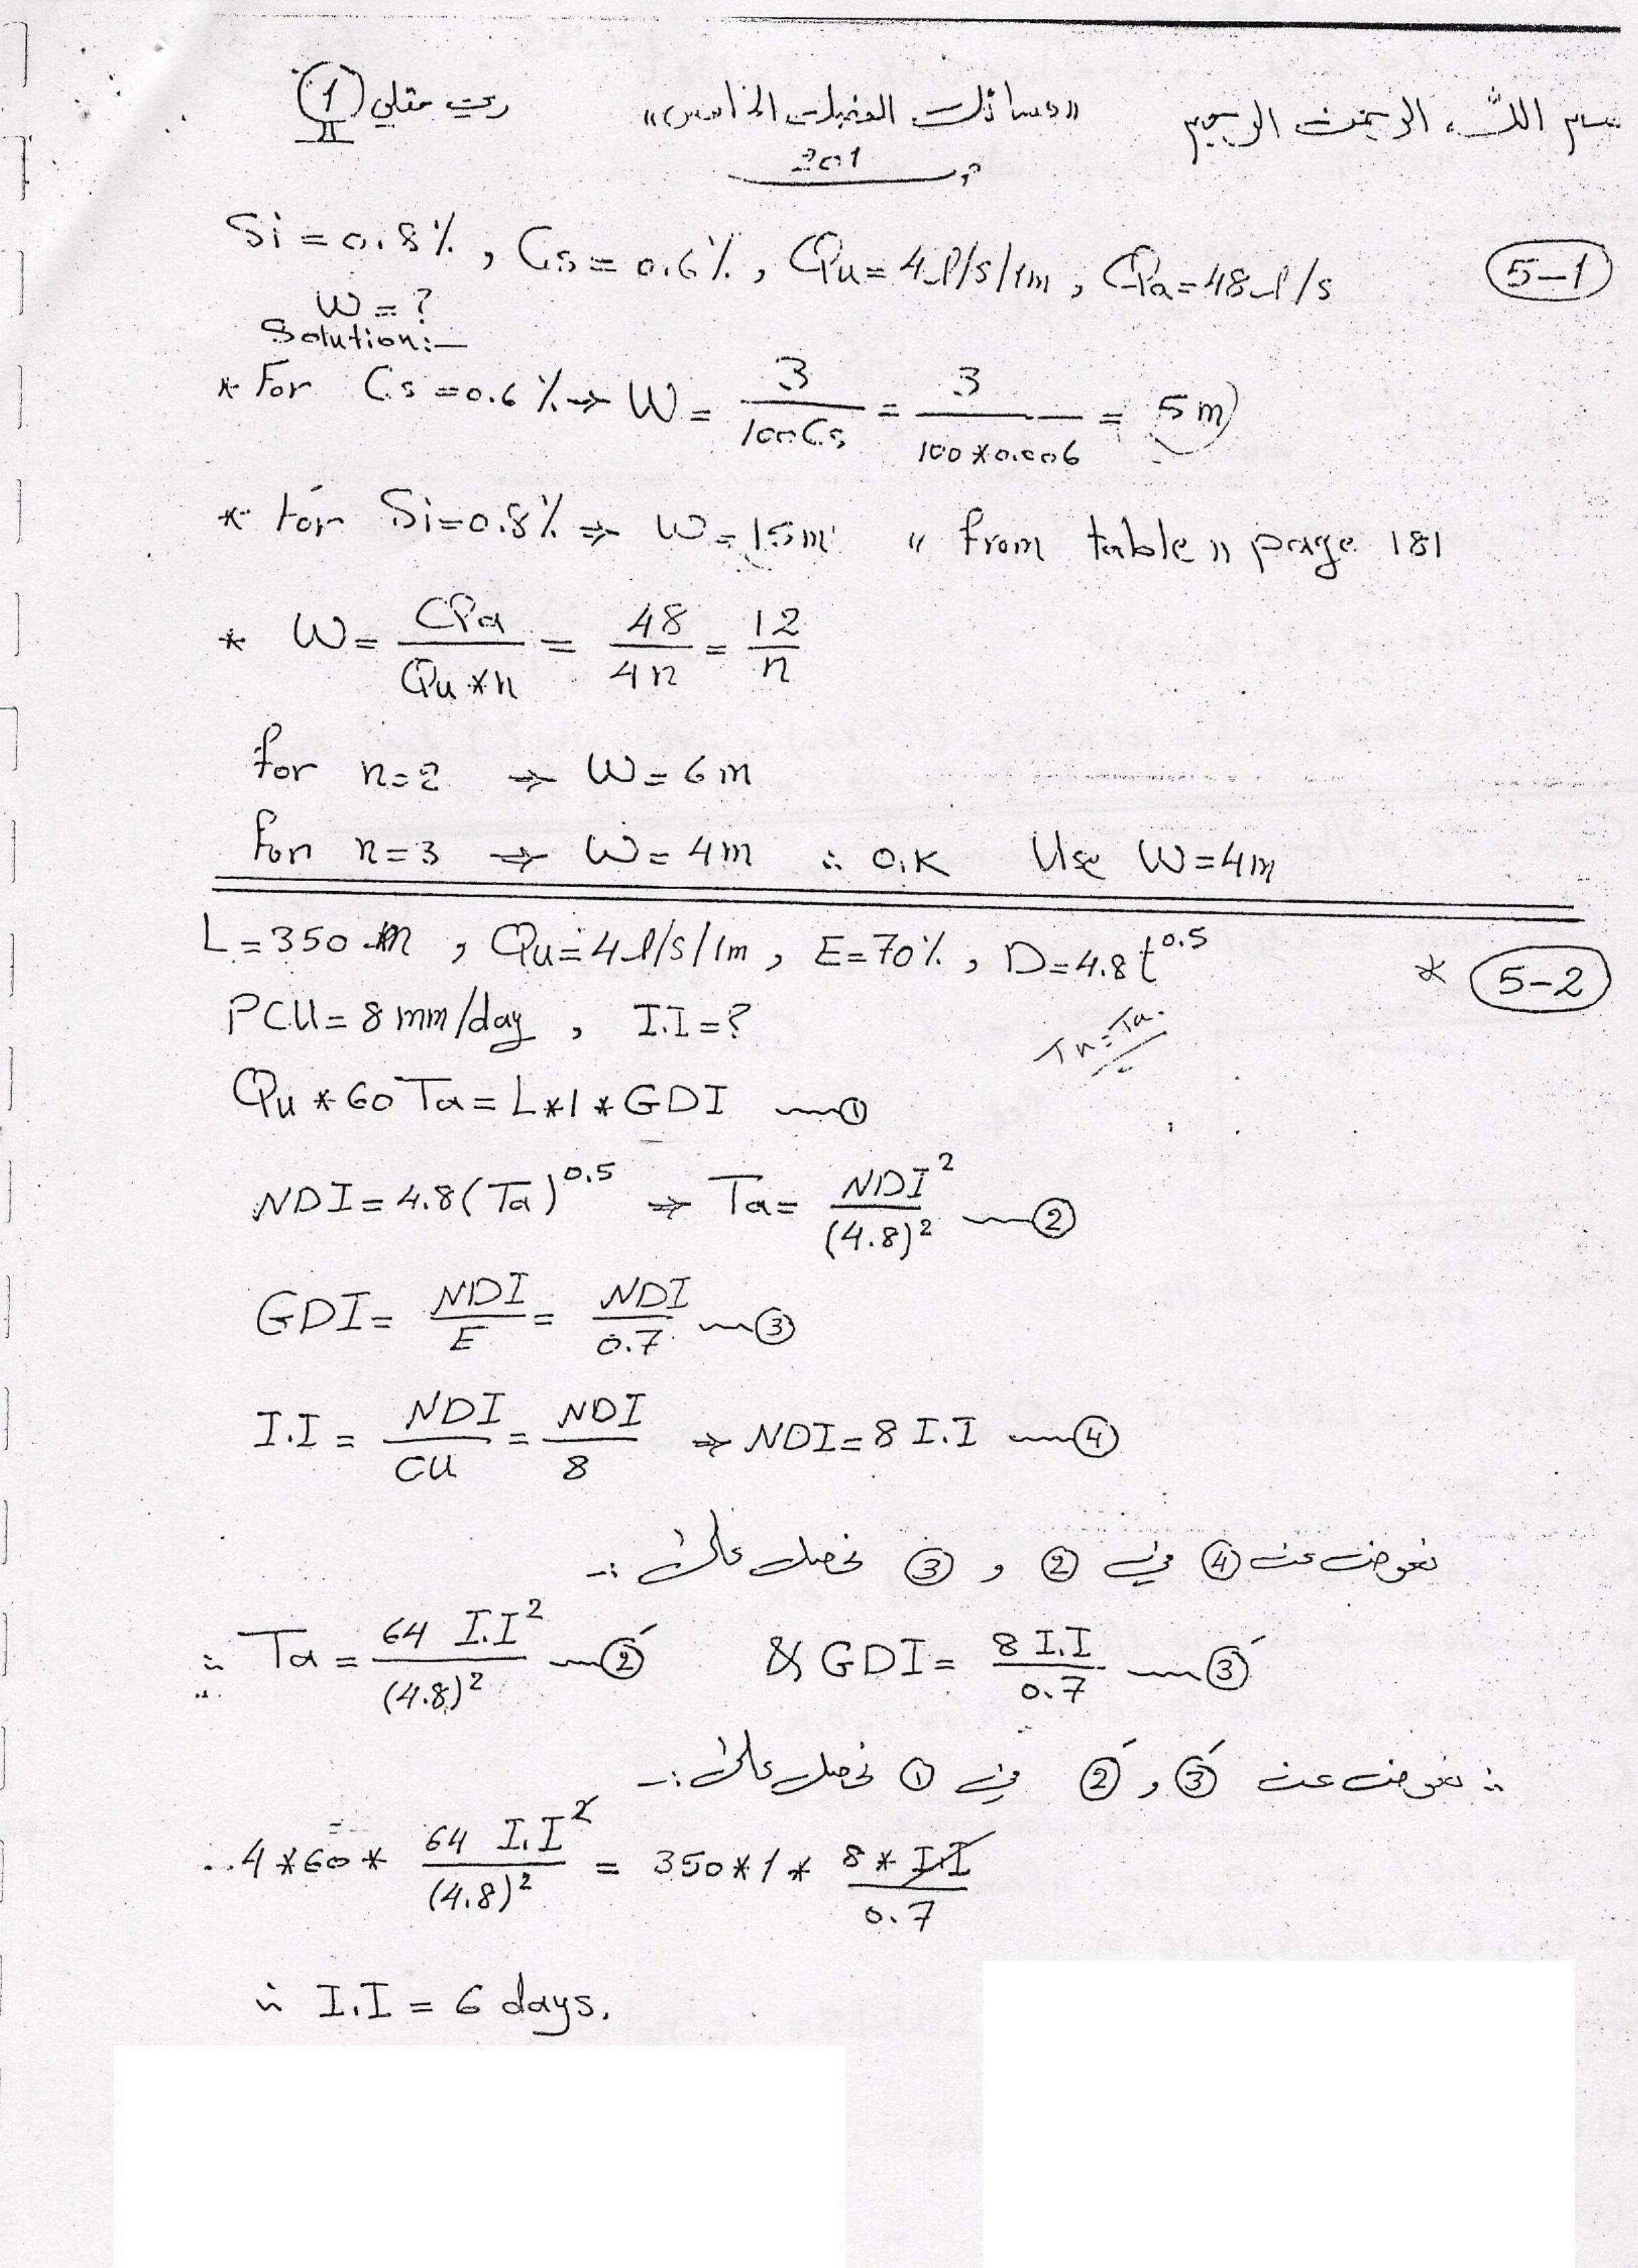 بسم الله الرحمن الرحيم «مسائل الفصل الخامس» ري حقلي 1
II
201
Si = 0.8%, Cs = 0.6%, Qu = 4 l/s/1m, Qa = 48 l/s 5-1
W = ?
Solution:-
* For Cs = 0.6% → W = 3/(100Cs) = 3/(100*0.006) = 5m
* For Si = 0.8% ⇒ W = 15m "from table" page 181
* W = Qa/(Qu*n) = 48/4n = 12/n
for n=2 ⇒ W = 6m
for n=3 ⇒ W = 4m ∴ O.K Use W = 4m
L = 350 m, Qu = 4 l/s/1m, E = 70%, D = 4.8 t^0.5 * 5-2
PCU = 8 mm/day, I.I = ? Tn = Ta
Qu * 60 Ta = L*1*GDI —①
NDI = 4.8(Ta)^0.5 ⇒ Ta = NDI²/(4.8)² —②
GDI = NDI/E = NDI/0.7 —③
I.I = NDI/CU = NDI/8 ⇒ NDI = 8 I.I —④
نعوض عن ④ في ② و ③ نحصل على :-
∴ Ta = 64 I.I²/(4.8)² —②́ & GDI = 8 I.I/0.7 —③́
∴ نعوض عن ③́ و ②́ في ① نحصل على :-
∴ 4*60* 64 I.I²/(4.8)² = 350*1* 8*I.I/0.7
∴ I.I = 6 days.